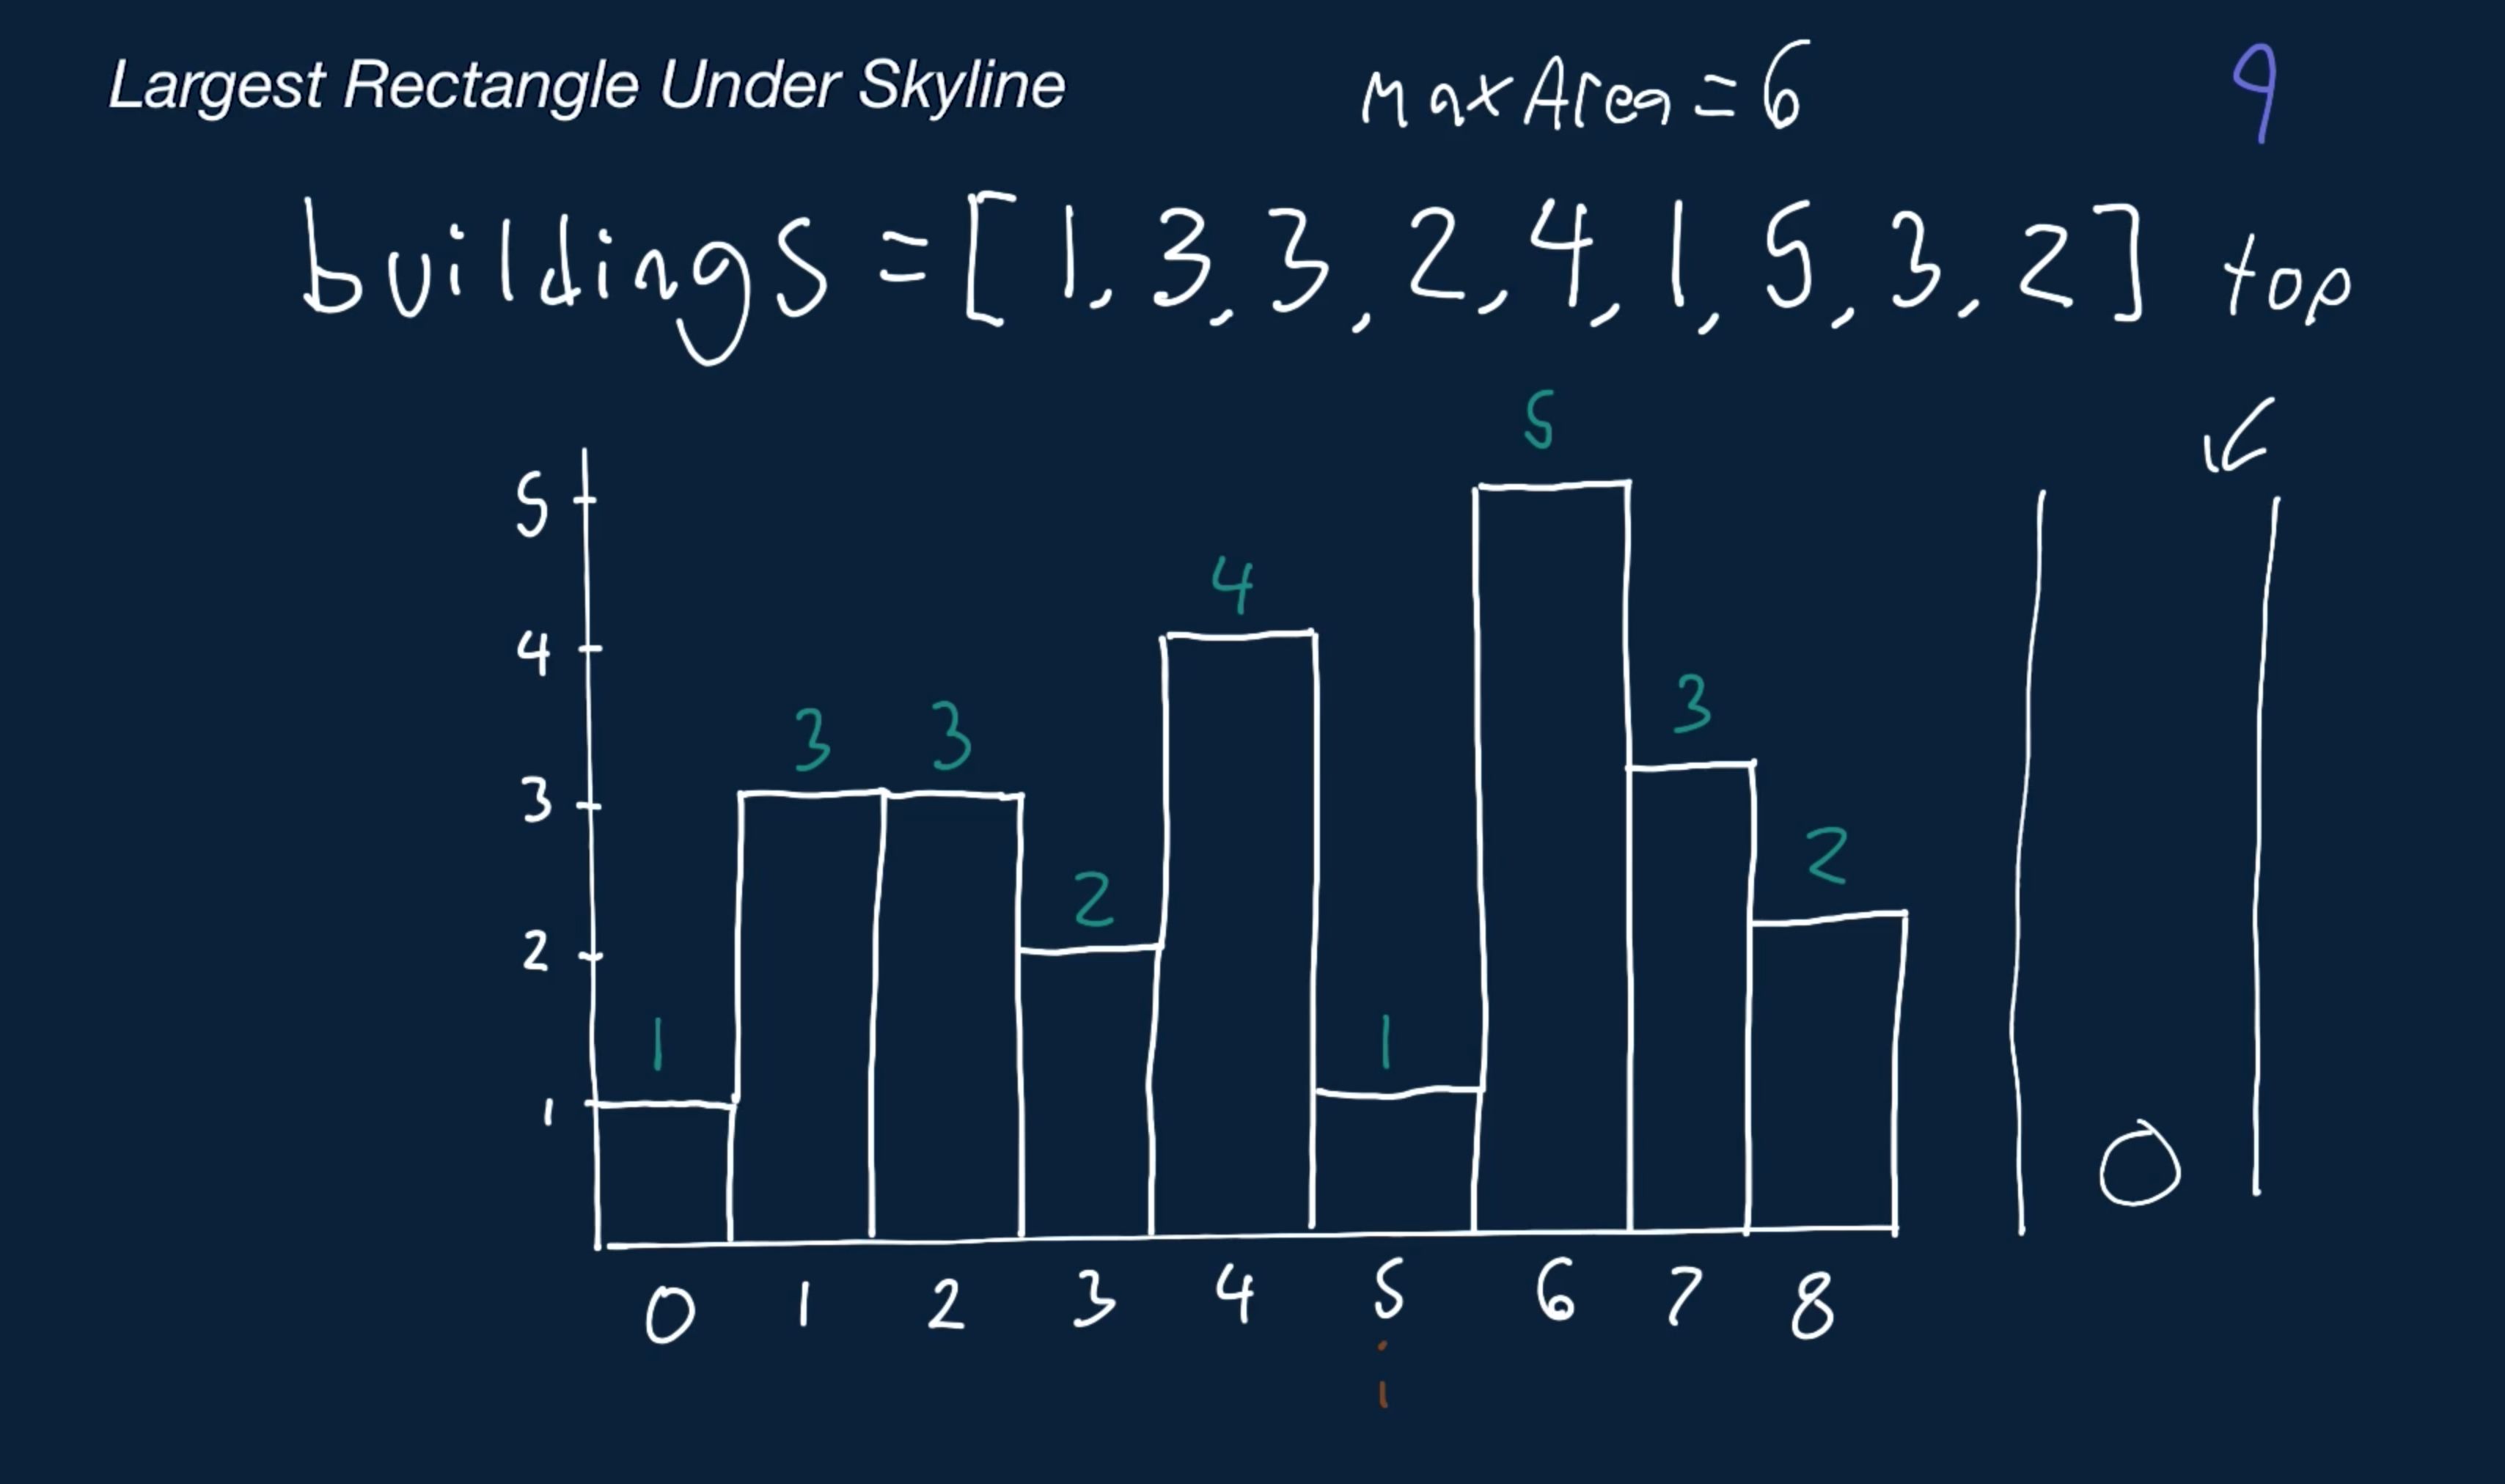 Largest Rectangle Under Skyline
MaxArea = 6
9
buildings = [1, 3, 3, 2, 4, 1, 5, 3, 2]
top
5
5
4
4
3
3
3
3
2
2
2
1
1
1
0
0 1 2 3 4 5 6 7 8
i